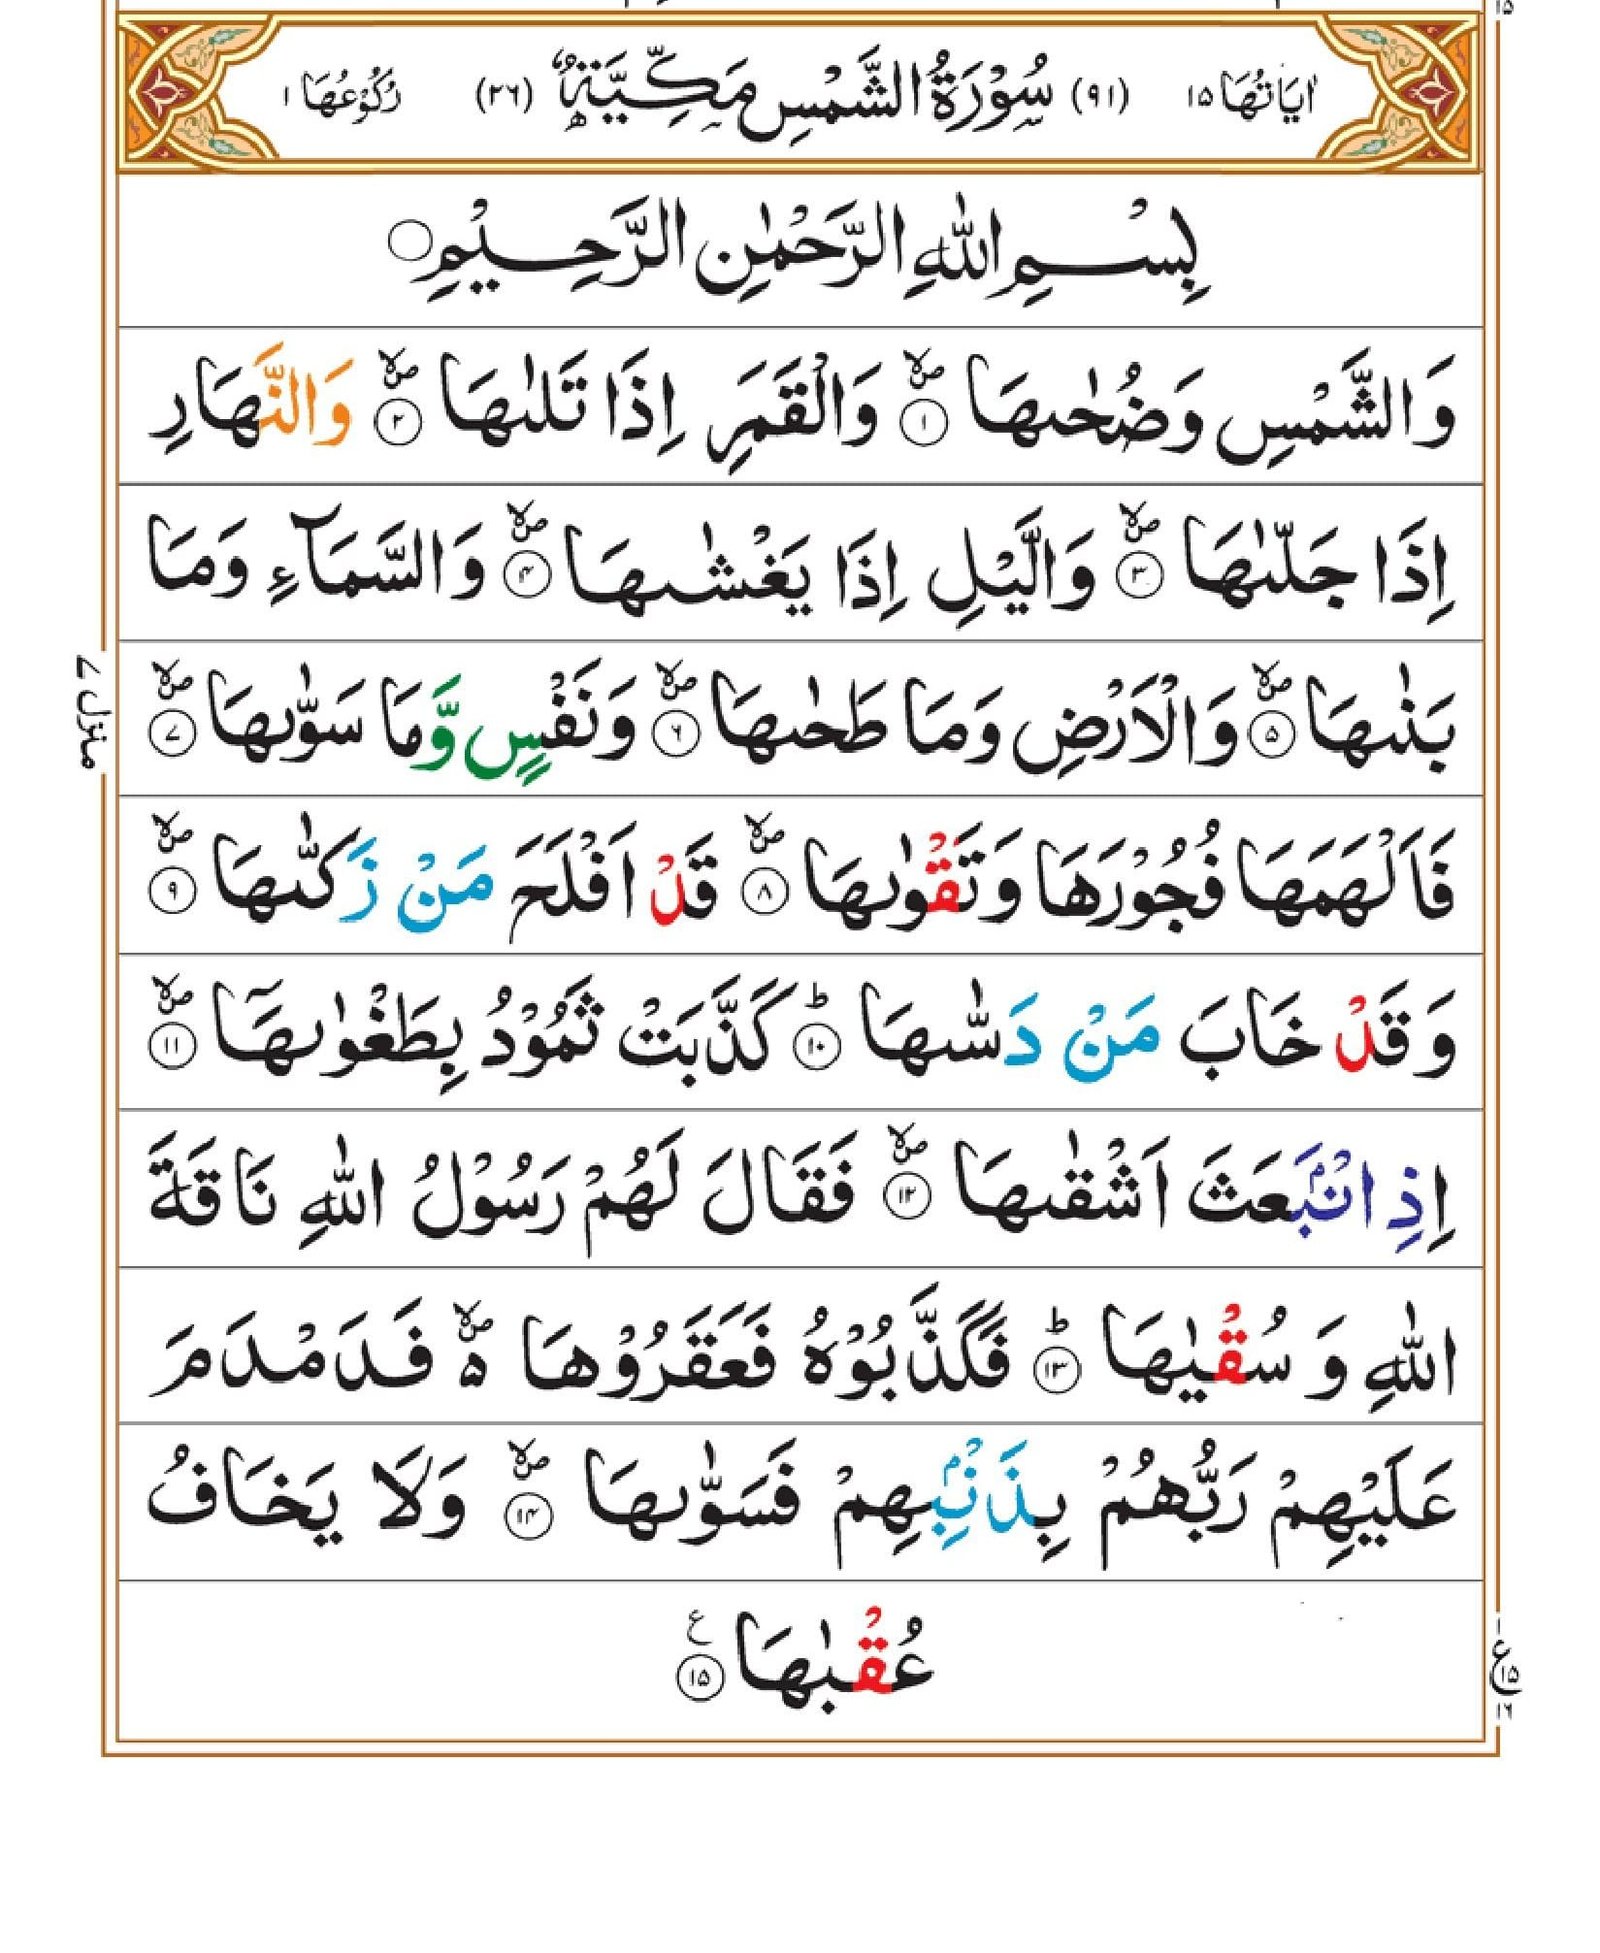 اٰيَاتُهَا ١٥ (٩١) سُوْرَةُ الشَّمْسِ مَكِّيَّةٌ (٢٦) رُكُوْعُهَا ١
بِسْمِ اللّٰهِ الرَّحْمٰنِ الرَّحِيْمِ
وَالشَّمْسِ وَضُحٰىهَا ۙ ١ وَالْقَمَرِ اِذَا تَلٰىهَا ۙ ٢ وَالنَّهَارِ
اِذَا جَلّٰىهَا ۙ ٣ وَالَّيْلِ اِذَا يَغْشٰىهَا ۙ ٤ وَالسَّمَآءِ وَمَا
بَنٰىهَا ۙ ٥ وَالْاَرْضِ وَمَا طَحٰىهَا ۙ ٦ وَنَفْسٍ وَّمَا سَوّٰىهَا ۙ ٧
فَاَلْهَمَهَا فُجُوْرَهَا وَتَقْوٰىهَا ۙ ٨ قَدْ اَفْلَحَ مَنْ زَكّٰىهَا ۙ ٩
وَقَدْ خَابَ مَنْ دَسّٰىهَا ؕ ١٠ كَذَّبَتْ ثَمُوْدُ بِطَغْوٰىهَاۤ ۙ ١١
اِذِ انْۢبَعَثَ اَشْقٰىهَا ۙ ١٢ فَقَالَ لَهُمْ رَسُوْلُ اللّٰهِ نَاقَةَ
اللّٰهِ وَ سُقْيٰهَا ؕ ١٣ فَكَذَّبُوْهُ فَعَقَرُوْهَا ۙ ۵ فَدَمْدَمَ
عَلَيْهِمْ رَبُّهُمْ بِذَنْۢبِهِمْ فَسَوّٰىهَا ۙ ١٤ وَلَا يَخَافُ
عُقْبٰهَا ١٥ ع
منزل ٧
١٥
١
ع ١٥
١٦